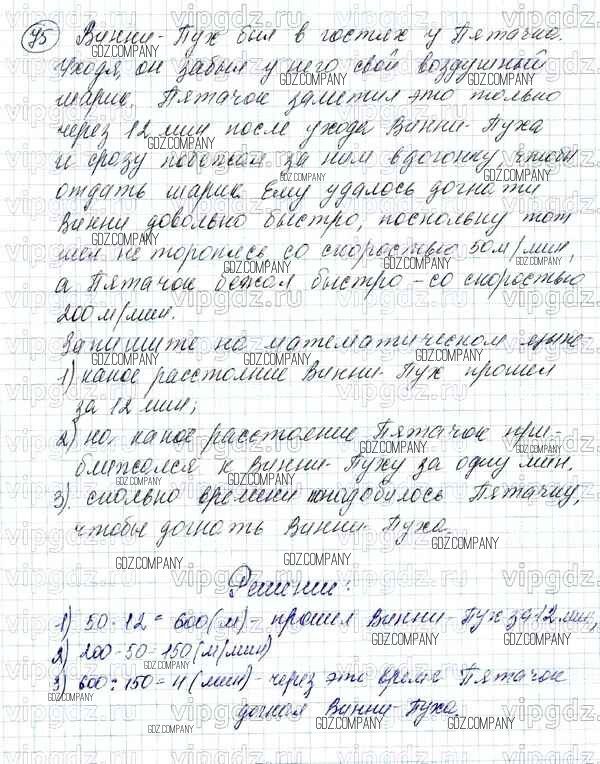 95 Винни-Пух был в гостях у Пятачка.
Уходя, он забыл у него свой воздушный
шарик. Пятачок заметил это только
через 12 мин после ухода Винни-Пуха
и сразу побежал за ним вдогонку, чтобы
отдать шарик. Ему удалось догнать
Винни довольно быстро, поскольку тот
шел не торопясь со скоростью 50 м/мин,
а Пятачок бежал быстро - со скоростью
200 м/мин.
Запишите на математическом языке
1) какое расстояние Винни-Пух прошел
за 12 мин;
2) на какое расстояние Пятачок при-
ближался к Винни-Пуху за одну мин.
3). сколько времени понадобилось Пятачку,
чтобы догнать Винни-Пуха.
Решение:
1) 50 · 12 = 600 (м) - прошел Винни-Пух за 12 мин,
2) 200 - 50 = 150 (м/мин)
3) 600 : 150 = 4 (мин) - через это время Пятачок
догнал Винни-Пуха.
GDZ.COMPANY
vipgdz.ru